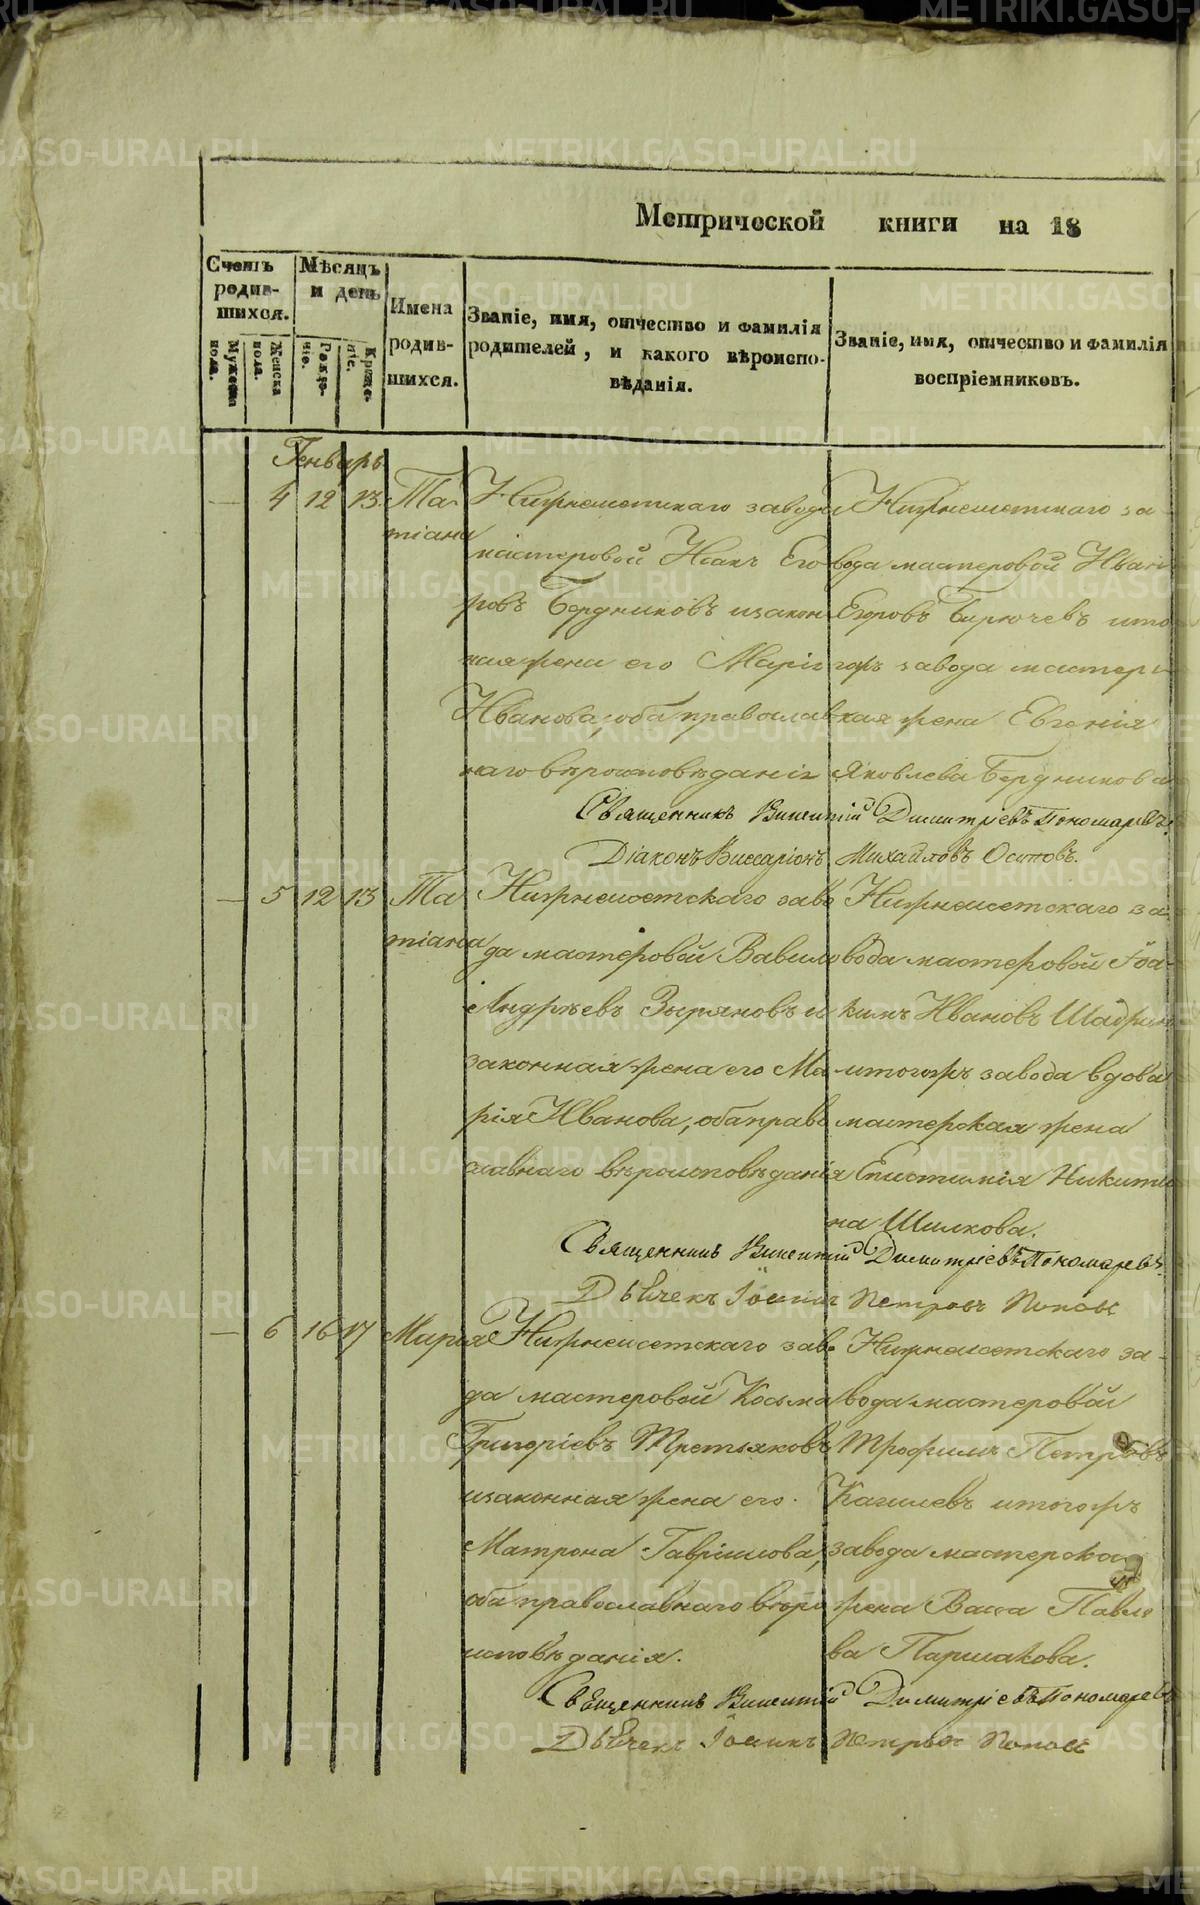 Метрической книги на 18
Счетъ родив-шихся.
Мѣсяцъ и день
Имена родив-шихся.
Званіе, имя, отчество и фамилія родителей, и какого вѣроиспо-вѣданія.
Званіе, имя, отчество и фамилія воспріемниковъ.
Мужеска пола.
Женска пола.
Рожде-ніе.
Креще-ніе.
Генварь
— 4 12 13. Та-
тіана
Нижнеисетскаго завода
мастеровой Исакъ Его
ровъ Бердниковъ изакон
ная жена его Марія
Иванова, оба православ
наго вѣроисповѣданія
Нижнеисетскаго за
вода мастеровой Иванъ
Егоровъ Бирючевъ ито
гожъ завода мастерс
кая жена Евгенія
Яковлева Бердникова
Священникъ Викентій Димитріевъ Пономаревъ.
Діаконъ Виссаріонъ Михайловъ Осиповъ.
— 5 12 13 Та
тіана
Нижнеисетскаго заво
да мастеровой Вавило
Андрѣевъ Зыряновъ и
законная жена его Ма
рія Иванова, оба право
славнаго вѣроисповѣданія
Нижнеисетскаго за-
вода мастеровой Іоа-
кимъ Ивановъ Шадрин
итогожъ завода вдова
мастерская жена
Епистимія Никити
на Шилкова.
Священникъ Викентій Димитріевъ Пономаревъ.
Дьячекъ Іоаннъ Петровъ Поповъ
— 6 16 17 Марія
Нижнеисетскаго заво
да мастеровой Косьма
Григоріевъ Третьяковъ
изаконная жена его
Матрона Гаврилова,
оба православнаго вѣро
исповѣданія.
Нижнеисетскаго за-
вода мастеровой
Трофимъ Петровъ
итогожъ
завода мастерская
жена Васса Павло
ва Паршакова.
Священникъ Викентій Димитріевъ Пономаревъ
Дьячекъ Іоаннъ Петровъ Поповъ
METRIKI.GASO-URAL.RU